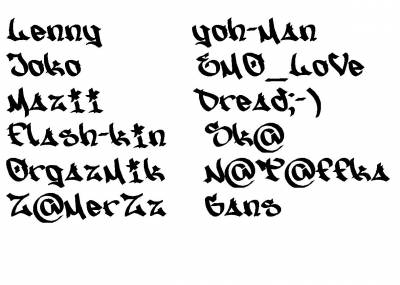 Lenny yoh-Man
Joko EMO_LoVe
Mazii Dread;-)
Flash-kin Sk@
OrgazMik N@T@ffka
Z@MerZz Gans